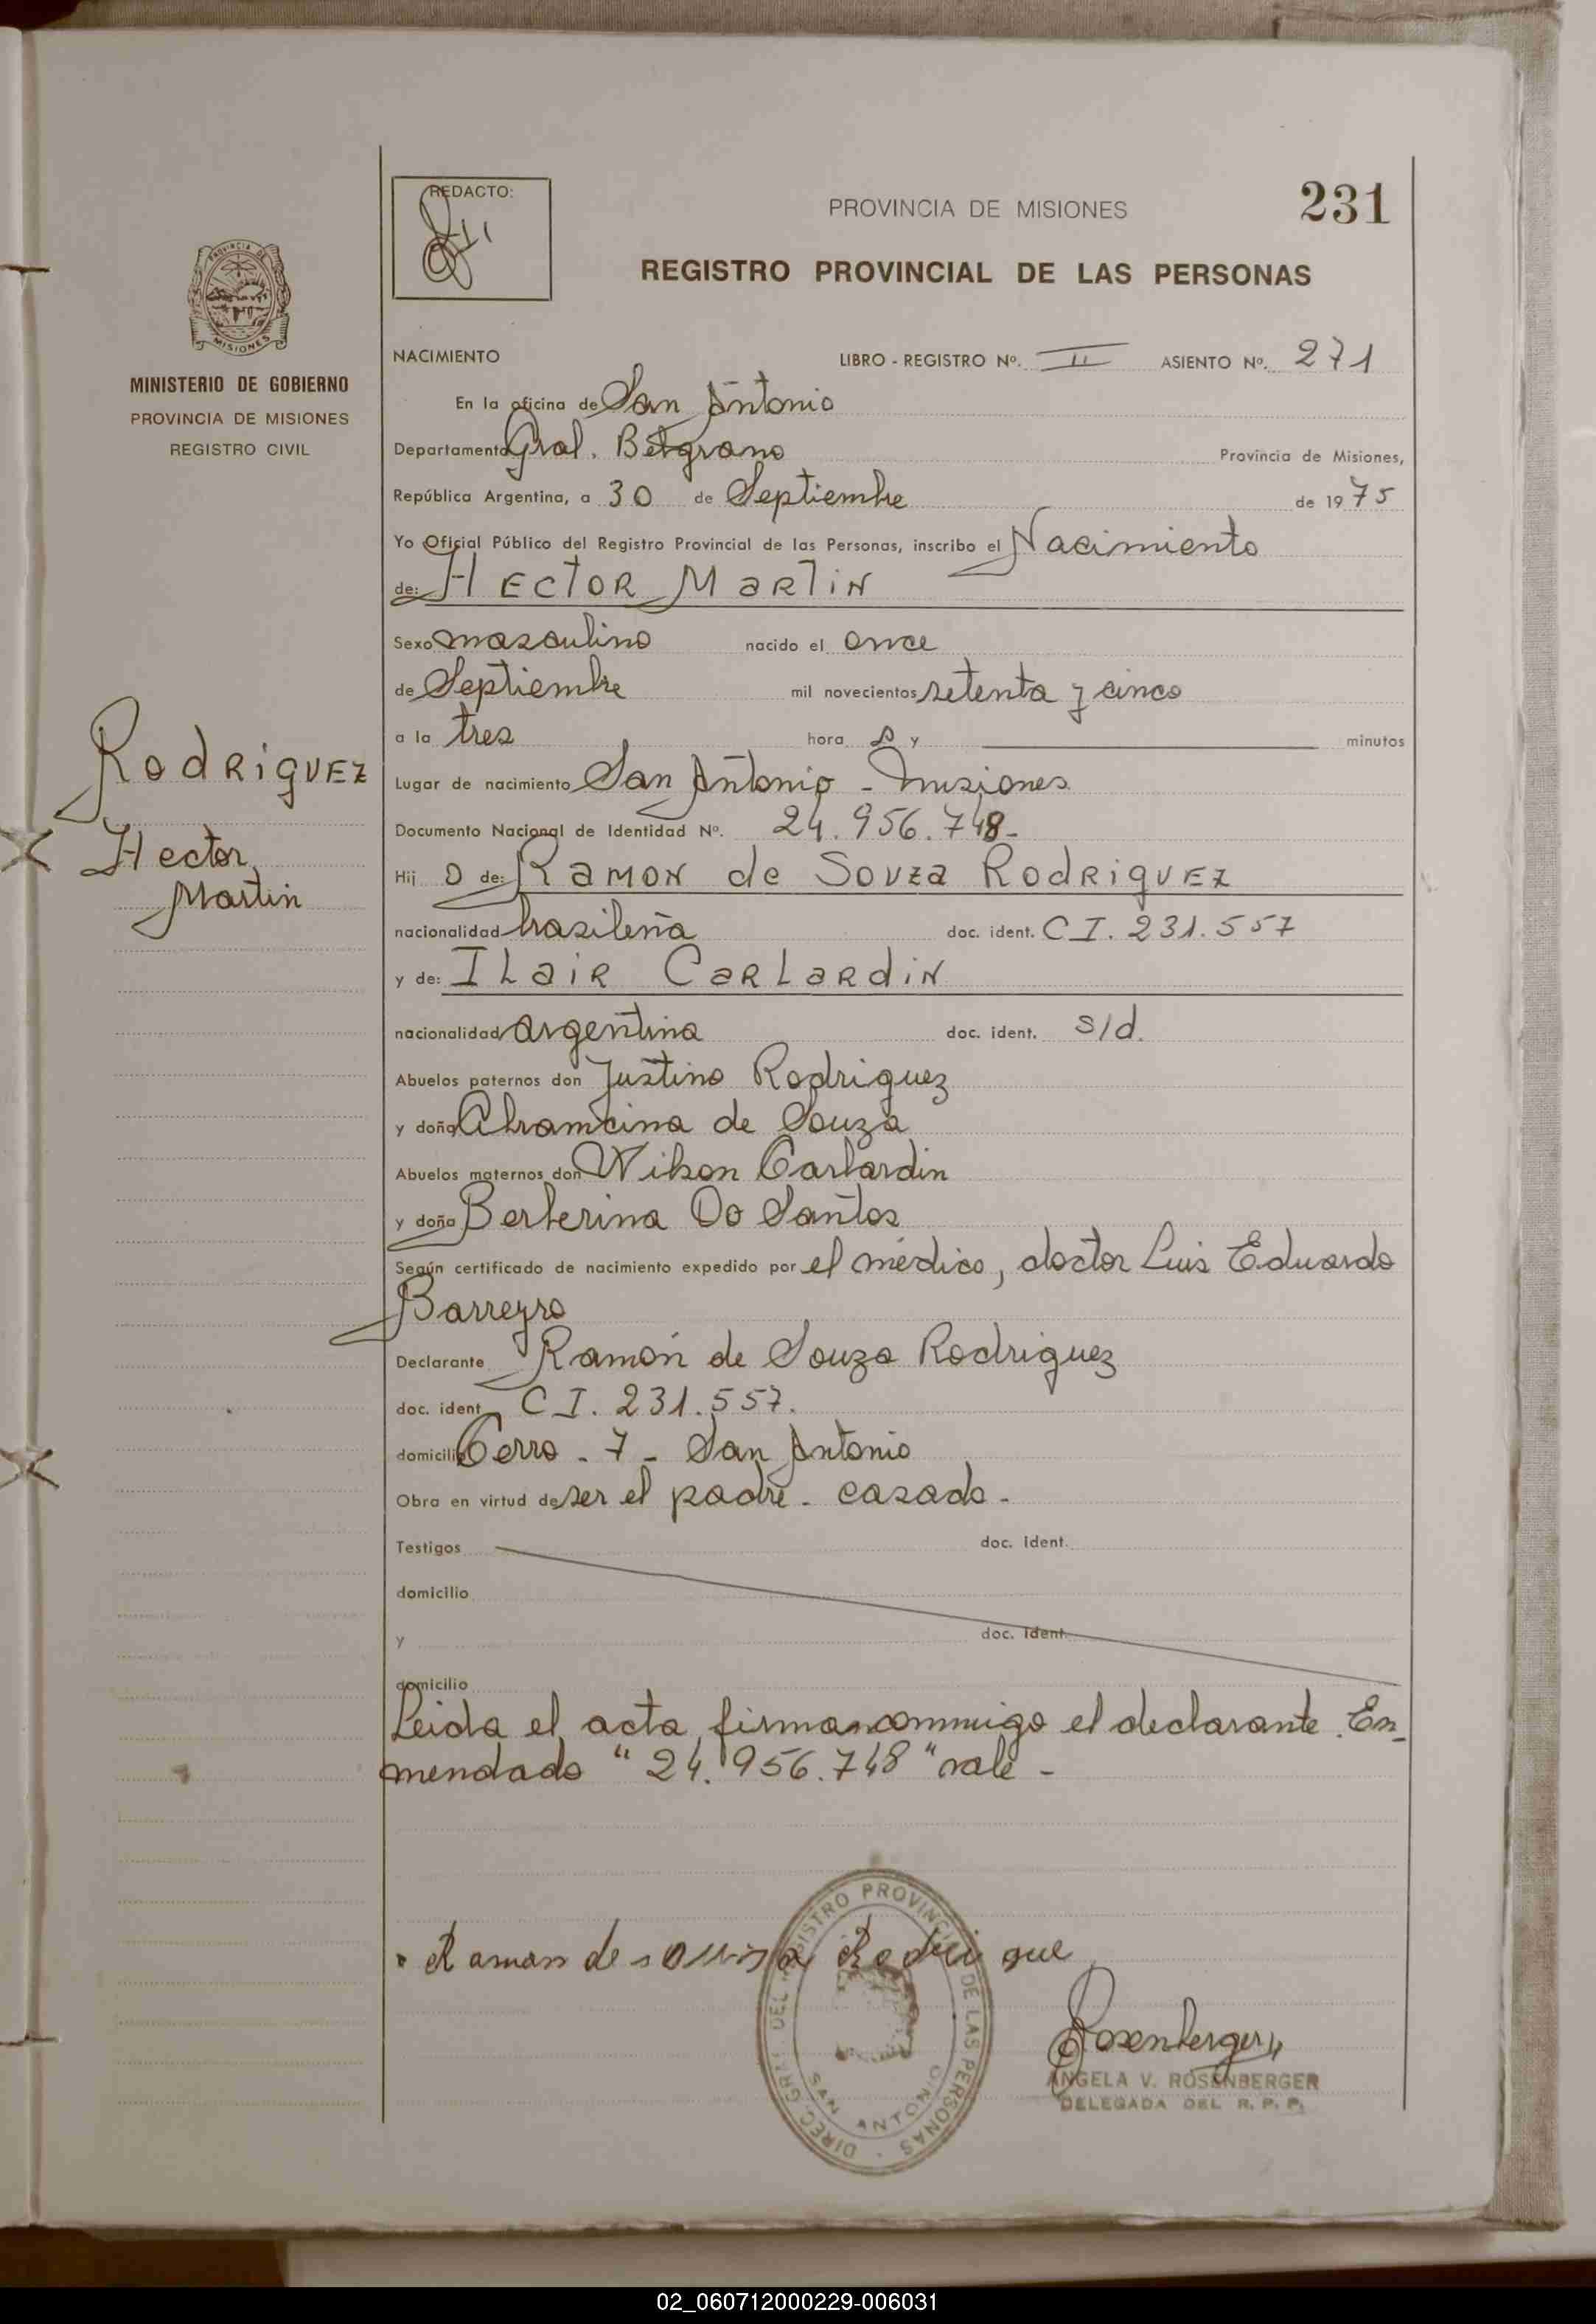 REDACTO:
PROVINCIA DE MISIONES
231
REGISTRO PROVINCIAL DE LAS PERSONAS
PROVINCIA DE
MISIONES
MINISTERIO DE GOBIERNO
PROVINCIA DE MISIONES
REGISTRO CIVIL
NACIMIENTO LIBRO - REGISTRO Nº. II ASIENTO Nº. 271
En la oficina de San Antonio
Departamento Gral. Belgrano Provincia de Misiones,
República Argentina, a 30 de Septiembre de 1975
Yo Oficial Público del Registro Provincial de las Personas, inscribo el Nacimiento
de: HECTOR MARTIN
Sexo masculino nacido el once
de Septiembre mil novecientos setenta y cinco
a la tres hora s y minutos
Rodriguez
Hector
Martin
Lugar de nacimiento San Antonio - Misiones
Documento Nacional de Identidad Nº. 24.956.748-
Hij o de: Ramon de Souza Rodriguez
nacionalidad brasileña doc. ident. C I. 231.557
y de: ILair CarLardin
nacionalidad argentina doc. ident. s/d.
Abuelos paternos don Justino Rodriguez
y doña de Souza
Abuelos maternos don Wilson Carlardin
y doña Berberina Do Santos
Según certificado de nacimiento expedido por el médico, doctor Luis Eduardo
Barreyro
Declarante Ramón de Souza Rodriguez
doc. ident C I. 231.557.
domicilio Cerro - 7 - San Antonio
Obra en virtud de ser el padre - casado -
Testigos doc. ident.
domicilio
y doc. ident.
domicilio
Leida el acta, firma conmigo el declarante. En-
mendado "24.956.748" vale -
Ramon de Rodrigue
DIREC. GRAL. DEL REGISTRO PROVINCIAL DE LAS PERSONAS -
SAN ANTONIO
Rosenberger
ANGELA V. ROSENBERGER
DELEGADA DEL R. P. P.
02_060712000229-006031